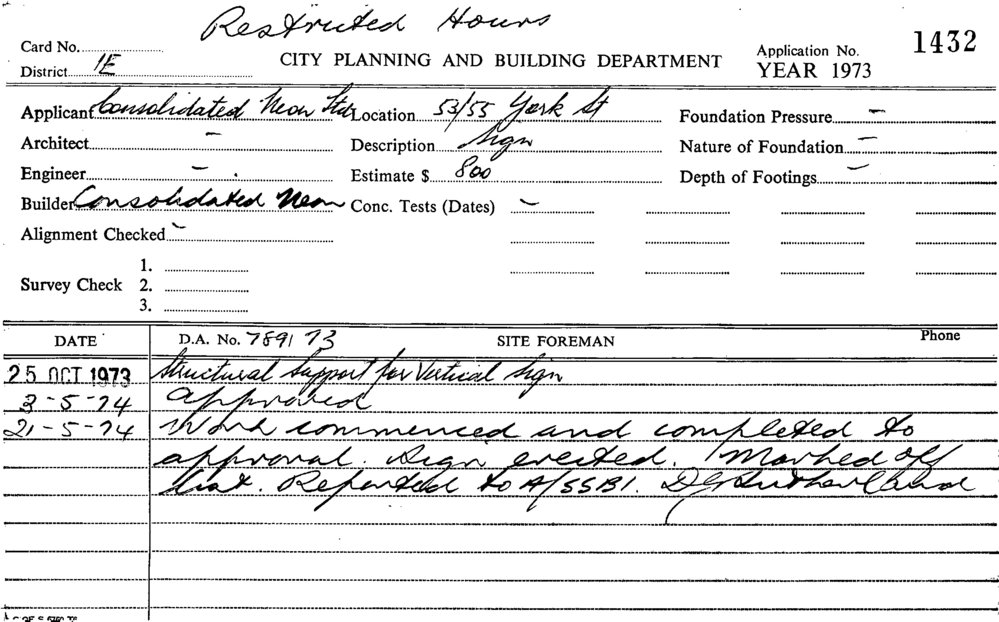 Restricted Hours
Card No.
District 1E
CITY PLANNING AND BUILDING DEPARTMENT
Application No. 1432
YEAR 1973
Applicant Consolidated Neon Location 53/55 York St Foundation Pressure -
Architect - Description Sign Nature of Foundation -
Engineer - Estimate $ 800 Depth of Footings -
Builder Consolidated Neon Conc. Tests (Dates) -
Alignment Checked -
1.
Survey Check 2.
3.
DATE D.A. No. 789/73 SITE FOREMAN Phone
25 OCT 1973 Structural Support for Vertical Sign
3-5-74 Approved
21-5-74 Work commenced and completed to
approval. Sign erected. Marked off
list. Reported to A/SSBI.